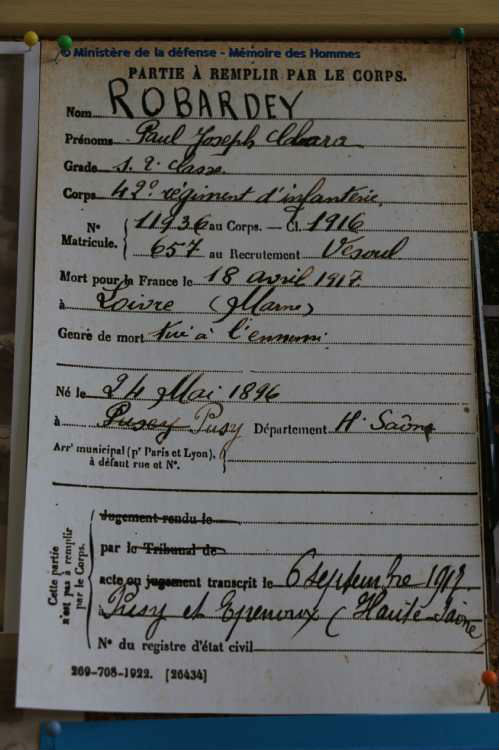 © Ministère de la défense - Mémoire des Hommes
PARTIE À REMPLIR PAR LE CORPS.
Nom ROBARDEY
Prénoms Paul Joseph
Grade s. 2e classe
Corps 42e régiment d'infanterie
N° Matricule. { 11936 au Corps. — Cl. 1916
657 au Recrutement Vesoul
Mort pour la France le 18 avril 1917
à Loivre (Marne)
Genre de mort tué à l'ennemi
Né le 24 Mai 1896
à Pusey Pusy Département Hte Saône
Arrt municipal (pr Paris et Lyon), à défaut rue et N°. {
Cette partie n'est pas à remplir par le Corps. {
Jugement rendu le
par le Tribunal de
acte ou jugement transcrit le 6 septembre 1917
à Pusy et Epenoux (Haute-Saône
N° du registre d'état civil
269-708-1922. [26434]